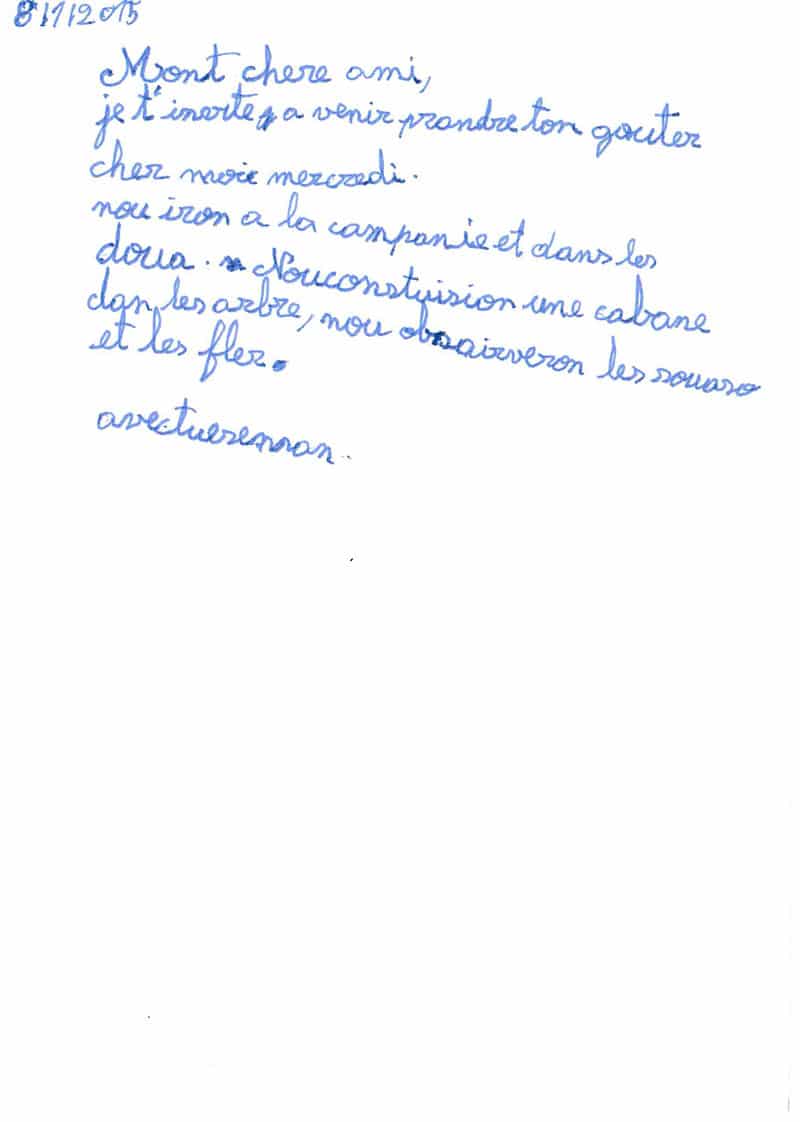 8/1/2015
Mont chere ami,
je t'inerte a venir prandre ton gouter
cher moie mercredi.
nou iron a la campanie et dans les
doua. Nouconstuision une cabane
dan les arbre, nou obsairveron les souaso
et les fler.
avectuerennan.